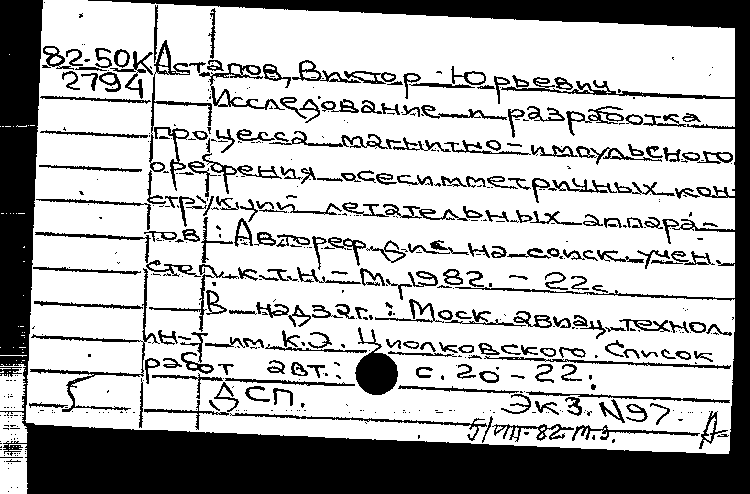 82-50К Астапов, Виктор Юрьевич.
2794
Исследование и разработка
процесса магнитно-импульсного
оребрения осесимметричных кон-
струкций летательных аппара-
тов: Автореф. дис на соиск. учен.
степ. к.т.н. - М., 1982. - 22с.
В надзаг.: Моск. авиац. технол.
ин-т им. К.Э. Циолковского. Список
работ авт.: с. 20-22.
ДСП. Экз. N97.
5/VIII-82 т.з.